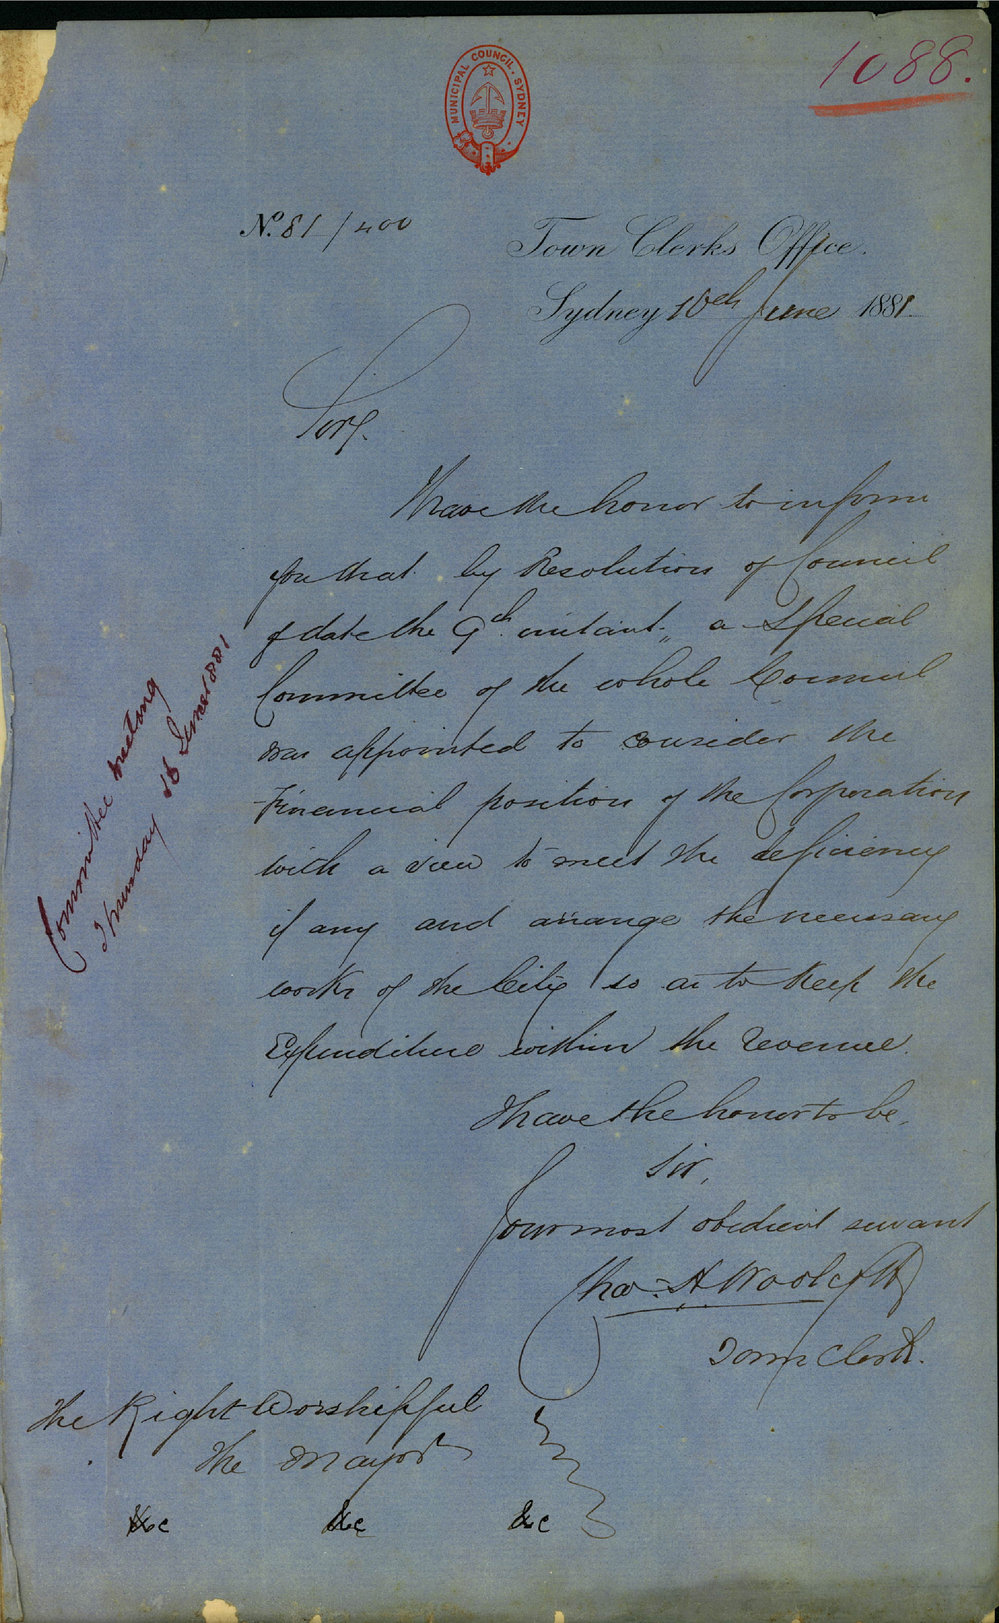 1088.
MUNICIPAL COUNCIL, SYDNEY
No. 81/400
Town Clerks Office.
Sydney 10th June 1881
Sir,
I have the honor to inform
you that by Resolution of Council
of date the 9th instant, a Special
Committee of the whole Council
was appointed to consider the
Financial position of the Corporation
with a view to meet the deficiency
if any and arrange the necessary
works of the City so as to keep the
Expenditure within the revenue.
I have the honor to be,
Sir,
Your most obedient servant
Thos. H Woolcott
Town Clerk.
The Right Worshipful
The Mayor
&c &c &c
Committee meeting
Thursday 16 June 1881